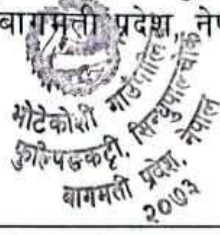 बागमती प्रदेश, ने
भोटेकोशी गाउँपालि
फुल्पिङकट्टी, सिन्धुपाल्चोक
बागमती प्रदेश, नेपाल
२०७३